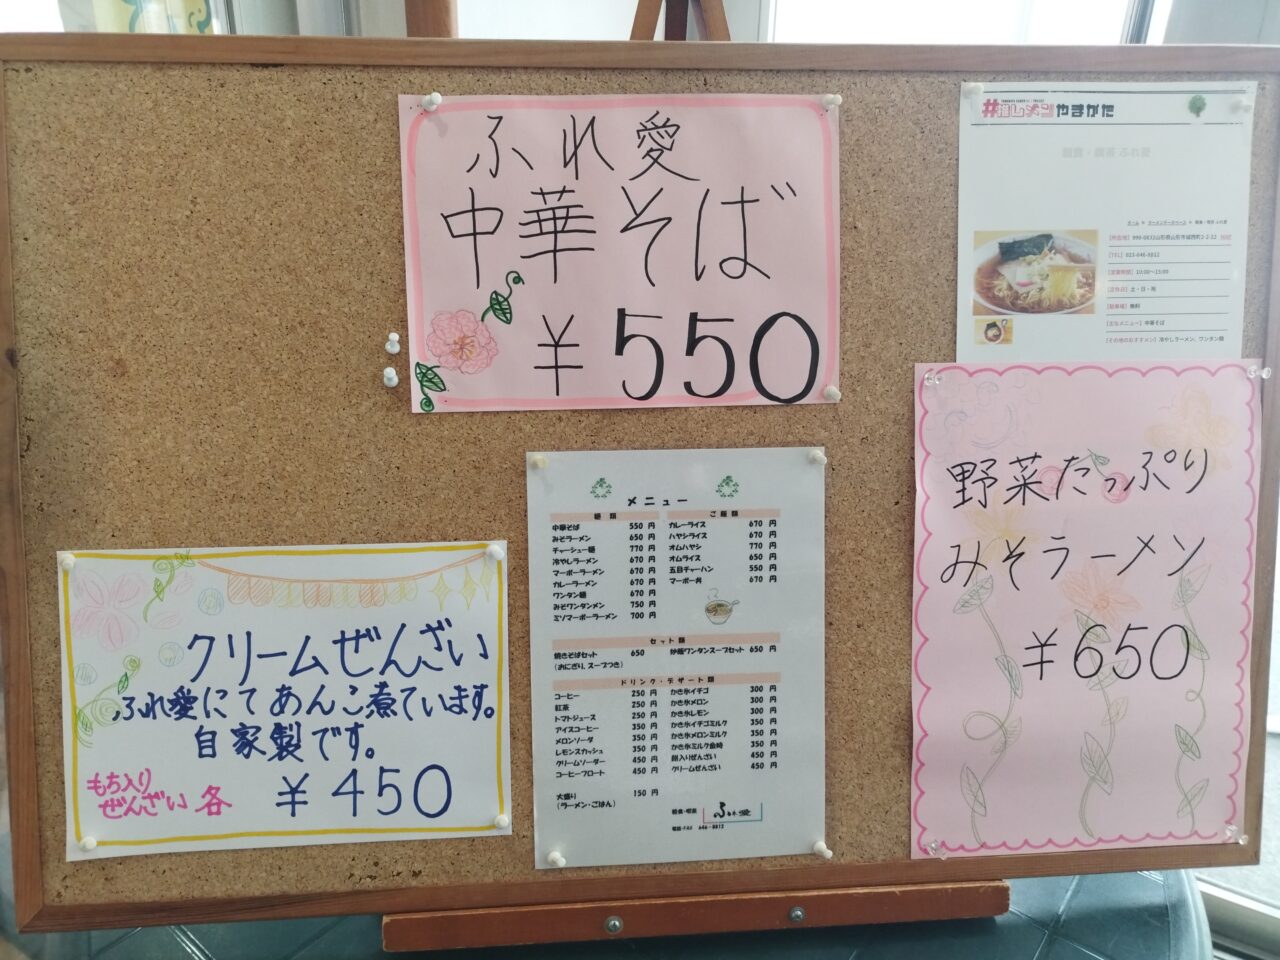 ふれ愛
中華そば
¥550
#推しメンやまがた
軽食・喫茶 ふれ愛
[TEL] 023-646-8812
[営業時間] 10:00~15:00
[定休日] 土・日・祝
[駐車場] 無料
[主なメニュー] 中華そば
[その他のおすすめメン] 冷やしラーメン、ワンタン麺
野菜たっぷり
みそラーメン
¥650
クリームぜんざい
ふれ愛にてあんこ煮ています。
自家製です。
もち入り
ぜんざい各
¥450
メニュー
麺類
中華そば 550円
みそラーメン 650円
チャーシュー麺 770円
冷やしラーメン 670円
マーボーラーメン 670円
カレーラーメン 670円
ワンタン麺 670円
みそワンタンメン 750円
ミソマーボーラーメン 700円
ご飯類
カレーライス 670円
ハヤシライス 670円
オムハヤシ 770円
オムライス 650円
五目チャーハン 550円
マーボー丼 670円
セット類
焼きそばセット 650
(おにぎり、スープつき)
炒飯ワンタンスープセット 650円
ドリンク・デザート類
コーヒー 250円
紅茶 250円
トマトジュース 250円
アイスコーヒー 350円
メロンソーダ 350円
レモンスカッシュ 350円
クリームソーダー 450円
コーヒーフロート 450円
かき氷イチゴ 300円
かき氷メロン 300円
かき氷レモン 300円
かき氷イチゴミルク 350円
かき氷メロンミルク 350円
かき氷ミルク金時 350円
餅入りぜんざい 450円
クリームぜんざい 450円
大盛り 150円
(ラーメン・ごはん)
軽食・喫茶 ふれ愛
電話・FAX 646-8812